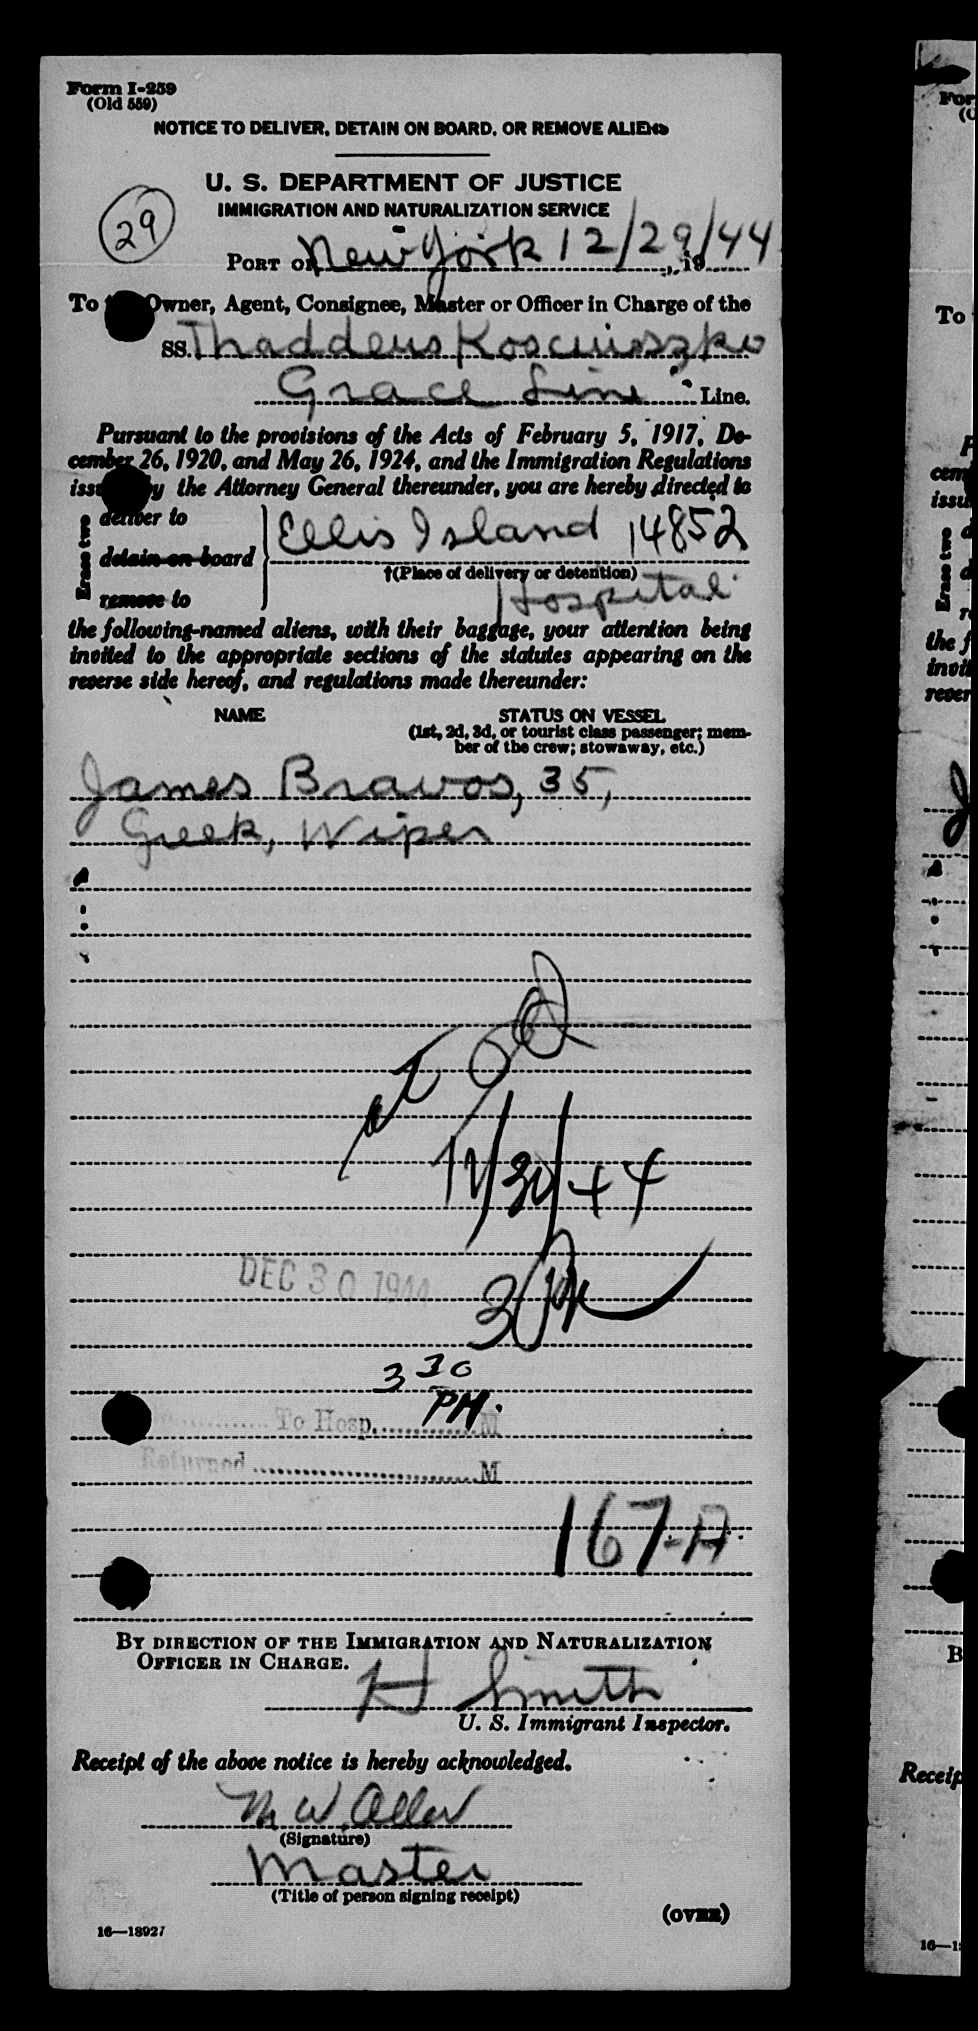 Form I-259
(Old 559)
NOTICE TO DELIVER, DETAIN ON BOARD, OR REMOVE ALIENS
U. S. DEPARTMENT OF JUSTICE
IMMIGRATION AND NATURALIZATION SERVICE
29
PORT OF New York 12/29/44, 19
To the Owner, Agent, Consignee, Master or Officer in Charge of the
SS. Thaddeus Kosciuszko
Grace Line Line.
Pursuant to the provisions of the Acts of February 5, 1917, De-
cember 26, 1920, and May 26, 1924, and the Immigration Regulations
issued by the Attorney General thereunder, you are hereby directed to
Erase two
deliver to
detain on board
remove to
Ellis Island 14852
†(Place of delivery or detention)
Hospital
the following-named aliens, with their baggage, your attention being
invited to the appropriate sections of the statutes appearing on the
reverse side hereof, and regulations made thereunder:
NAME
STATUS ON VESSEL
(1st, 2d, 3d, or tourist class passenger; mem-
ber of the crew; stowaway, etc.)
James Bravos, 35,
Greek, Wiper
12/30/44
DEC 30 1944
3 PM
3 30
PM.
To Hosp. M
Returned M
167-A
BY DIRECTION OF THE IMMIGRATION AND NATURALIZATION
OFFICER IN CHARGE.
H Smith
U. S. Immigrant Inspector.
Receipt of the above notice is hereby acknowledged.
M W. Allen
(Signature)
Master
(Title of person signing receipt)
(OVER)
16—18927